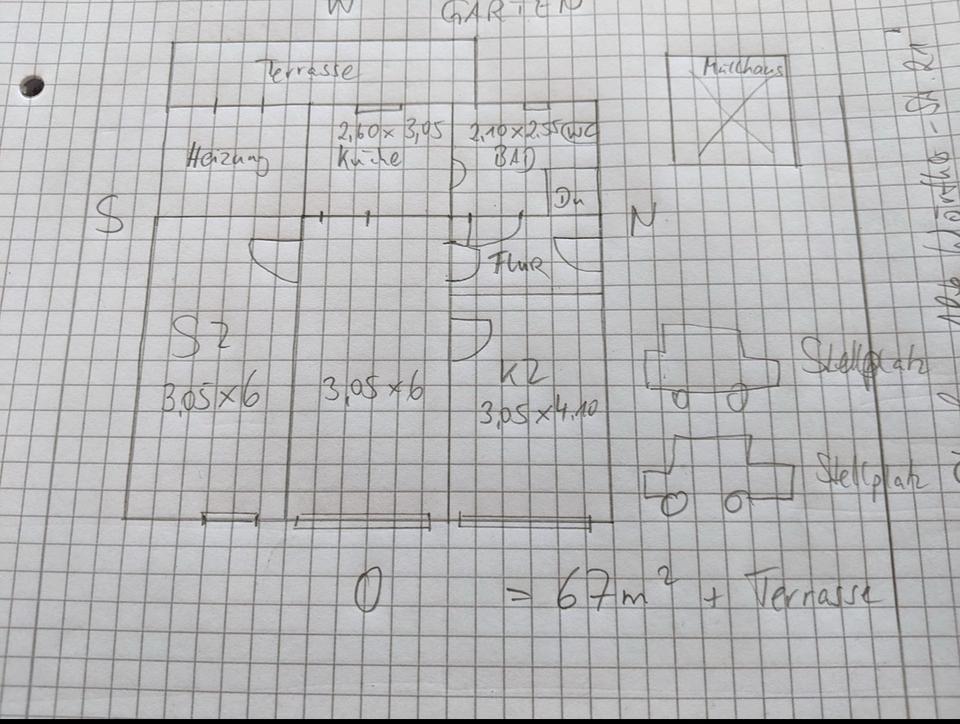 W GARTEN
Terrasse
Müllhaus
2,60 x 3,05
Küche
2,10 x 2,55 WC
BAD
Heizung
Du
S
N
Flur
SZ
3,05 x 6
3,05 x 6
KZ
3,05 x 4,10
Stellplatz
Stellplatz
O
= 67m² + Terrasse